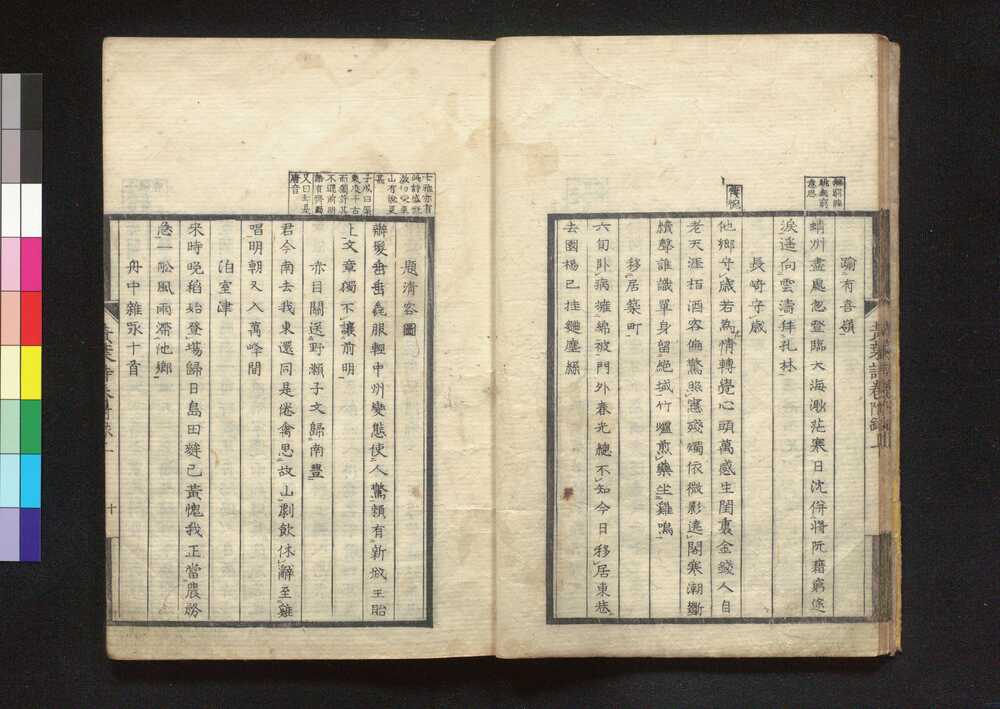 踰有喜嶺
晴州盡處忽登臨大海渺茫寒日沈併將阮籍窮途
淚遥向雲濤拜孔林
長崎守歳
他鄉守歳若為情轉覺心頭萬感生閨裏金錢人自
老天涯栢酒客偏驚照窻殘燭依微影遶閣寒潮斷
續聲誰識單身留絶域竹爐煎藥坐雞鳴
移居築町
六旬臥病擁綿被門外春光總不知今日移居東巷
去園楊已挂麯塵絲
題清客圖
辮髮垂垂毳服輕中州變態使人驚頼有新城王貽
上文章獨不讓前明
赤目關送野瀬子文歸南豐
君今南去我東還同是倦禽思故山劇飲休辭至雞
唱明朝又入萬峰間
泊室津
來時晚稻始登場歸日島田麰已黃愧我正當農務
急一船風雨滯他鄉
舟中雜詠十首